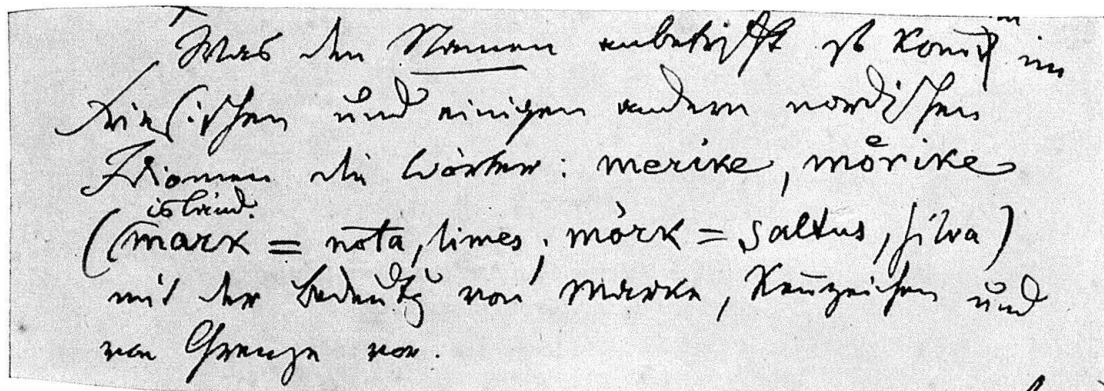 Was den Namen anbetrifft so kommt im
Friesischen und einigen andern nordischen
Idiomen die Wörter: merike, mörike
(island. mark = nota, limes; mörk = saltus, silva)
mit der Bedeutg von Marke, Kennzeichen und
von Grenze vor.